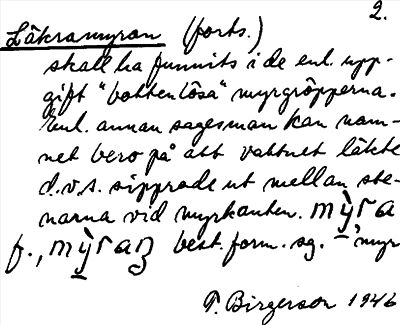 2.
Läkramyran (forts.)
skall ha funnits i de enl. upp-
gift "bottenlösa" myrgröpperna.
Enl. annan sagesman kan nam-
net bero på att vattnet läkte
d.v.s. sipprade ut mellan ste-
narna vid myrkanten. mỳra
f., mỳraŋ best. form. sg. – 'myr
P. Birgerson 1946